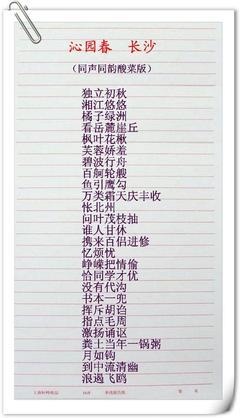 沁园春　长沙
（同声同韵酸菜版）
独立初秋
湘江悠悠
橘子绿洲
看岳麓崖丘
枫叶花楸
芙蓉娇羞
碧波行舟
百舸轮艘
鱼引鹰勾
万类霜天庆丰收
怅北州
问叶茂枝抽
谁人甘休
携来百侣进修
忆烦忧
峥嵘把情偷
恰同学才优
没有代沟
书本一兜
挥斥胡诌
指点毛周
激扬诵讴
粪土当年一锅粥
月如钩
到中流清幽
浪遏飞鸥